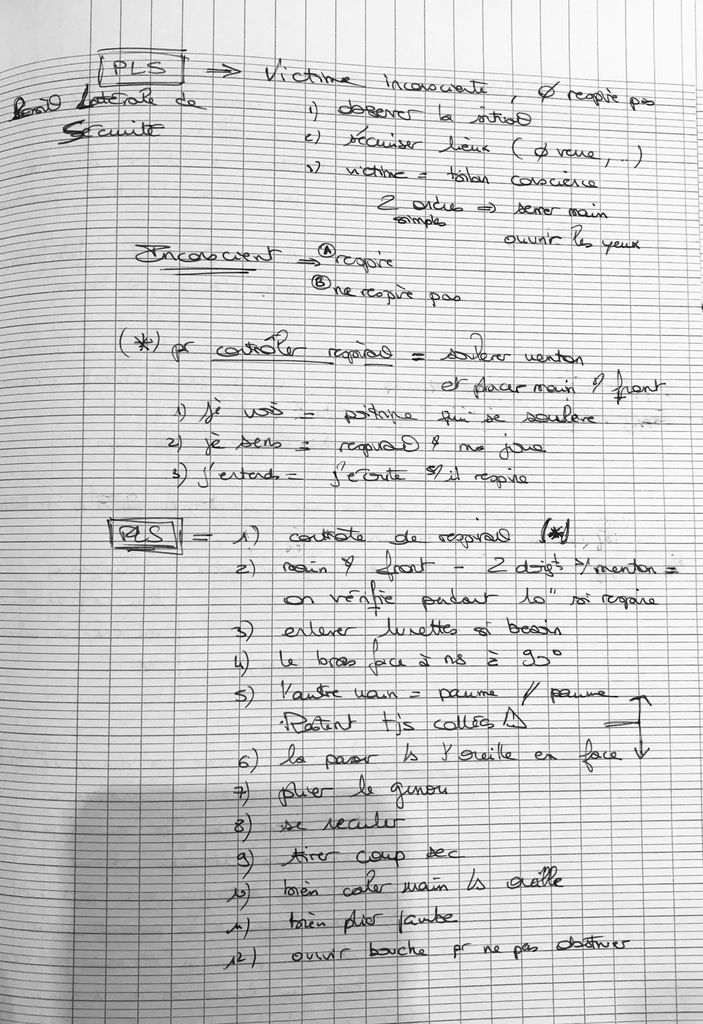 PLS → Victime inconsciente, ∅ respire pas
Latérale de
Sécurité
1) observer la situat°
2) sécuriser lieux (∅ verre, ...)
3) victime = bilan conscience
2 ordres simples → serrer main
ouvrir les yeux
Inconscient → Ⓐ respire
Ⓑ ne respire pas
(*) pr contrôler respirat° = soulever menton
et placer main s/ front
1) je vois = poitrine qui se soulève
2) je sens = respirat° s/ ma joue
3) j'entends = j'écoute s'il respire
PLS = 1) contrôle de respirat° (*)
2) main s/ front - 2 doigts s/ menton =
on vérifie pendant 10" si respire
3) enlever lunettes si besoin
4) le bras face à ns à 90°
5) l'autre main = paume // paume
Restent tjs collées ⚠
6) la passer ss l'oreille en face
7) plier le genou
8) se reculer
9) tirer coup sec
10) bien caler main ss oreille
11) bien plier jambe
12) ouvrir bouche pr ne pas obstruer